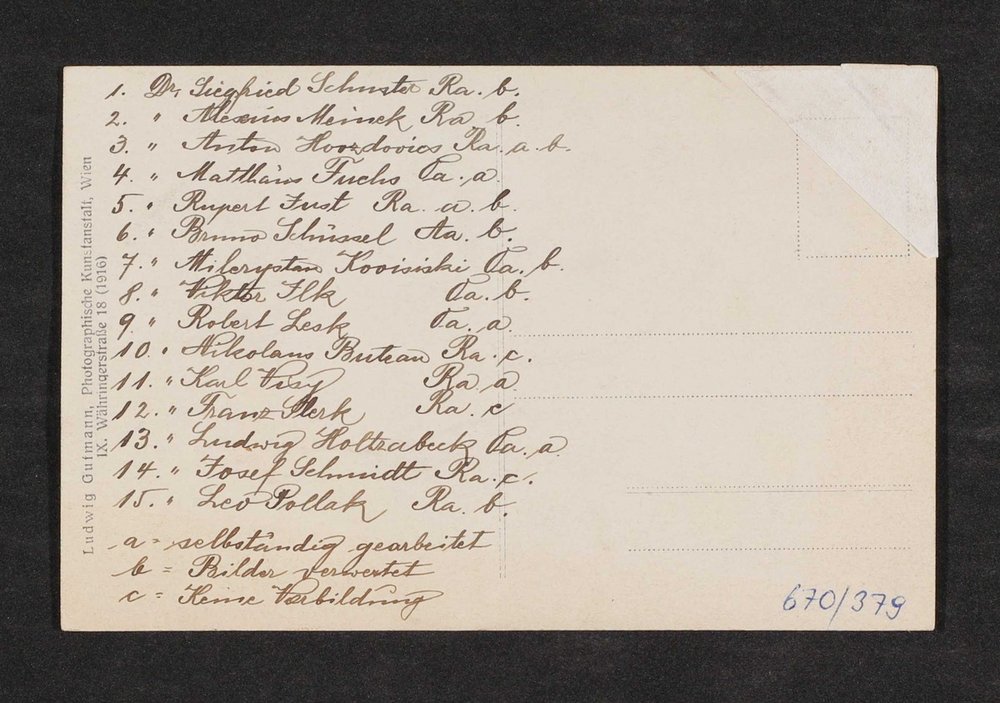 1. Dr. Siegfried Schuster Ra. b.
2. " Alexius Meinck Ra b.
3. " Anton Ra. a. b.
4. " Matthäus Fuchs Oa. a.
5. " Rupert Just Ra. a. b.
6. " Bruno Schüssel Aa. b.
7. " Oa. b.
8. " Viktor Ilk Oa. b.
9. " Robert Lesk Oa. a.
10. " Nikolaus Butean Ra. c.
11. " Karl Visy Ra a.
12. " Franz Ra. c
13. " Ludwig Holtzabeck Oa. a.
14. " Josef Schmidt Ra. c.
15. " Leo Pollak Ra. b.
a = selbständig gearbeitet
b = Bilder verwertet
c = Keine Vorbildung
Ludwig Gutmann, Photographische Kunstanstalt, Wien
IX. Währingerstraße 18 (1916)
670/379